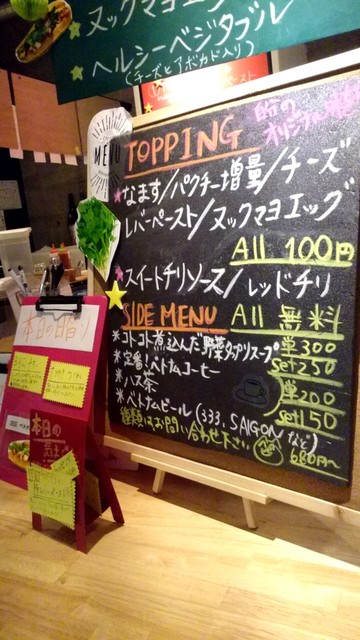 ★ヌックマヨエッグ
★ヘルシーベジタブル
(チーズとアボカド入り)
MENU
TOPPING
自分の
オリジナル
★なます/パクチー増量/チーズ
レバーペースト/ヌックマヨエッグ
All 100円
★スイートチリソース/レッドチリ
SIDE MENU All 無料
*コトコト煮込んだ野菜タップリスープ 単300
*定番!ベトナムコーヒー set250
*ハス茶 単200
*ベトナムビール(333、SAIGONなど) set150
種類はお問い合わせ下さい 680円~
本日の日替り
本日の